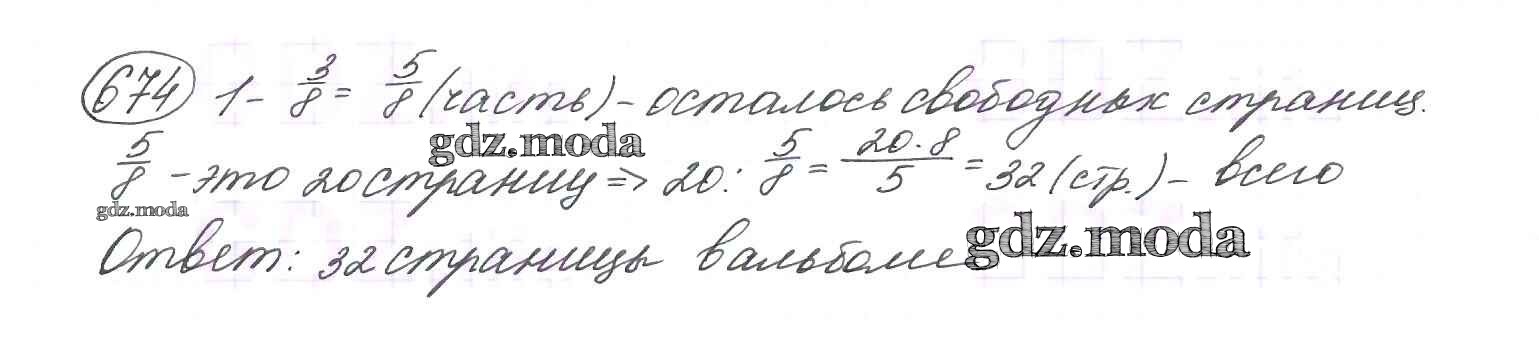 674 1 - 3/8 = 5/8 (часть) - осталось свободных страниц.
gdz.moda
5/8 - это 20 страниц => 20 : 5/8 = 20·8/5 = 32 (стр.) - всего
gdz.moda
Ответ: 32 страницы в альбоме
gdz.moda